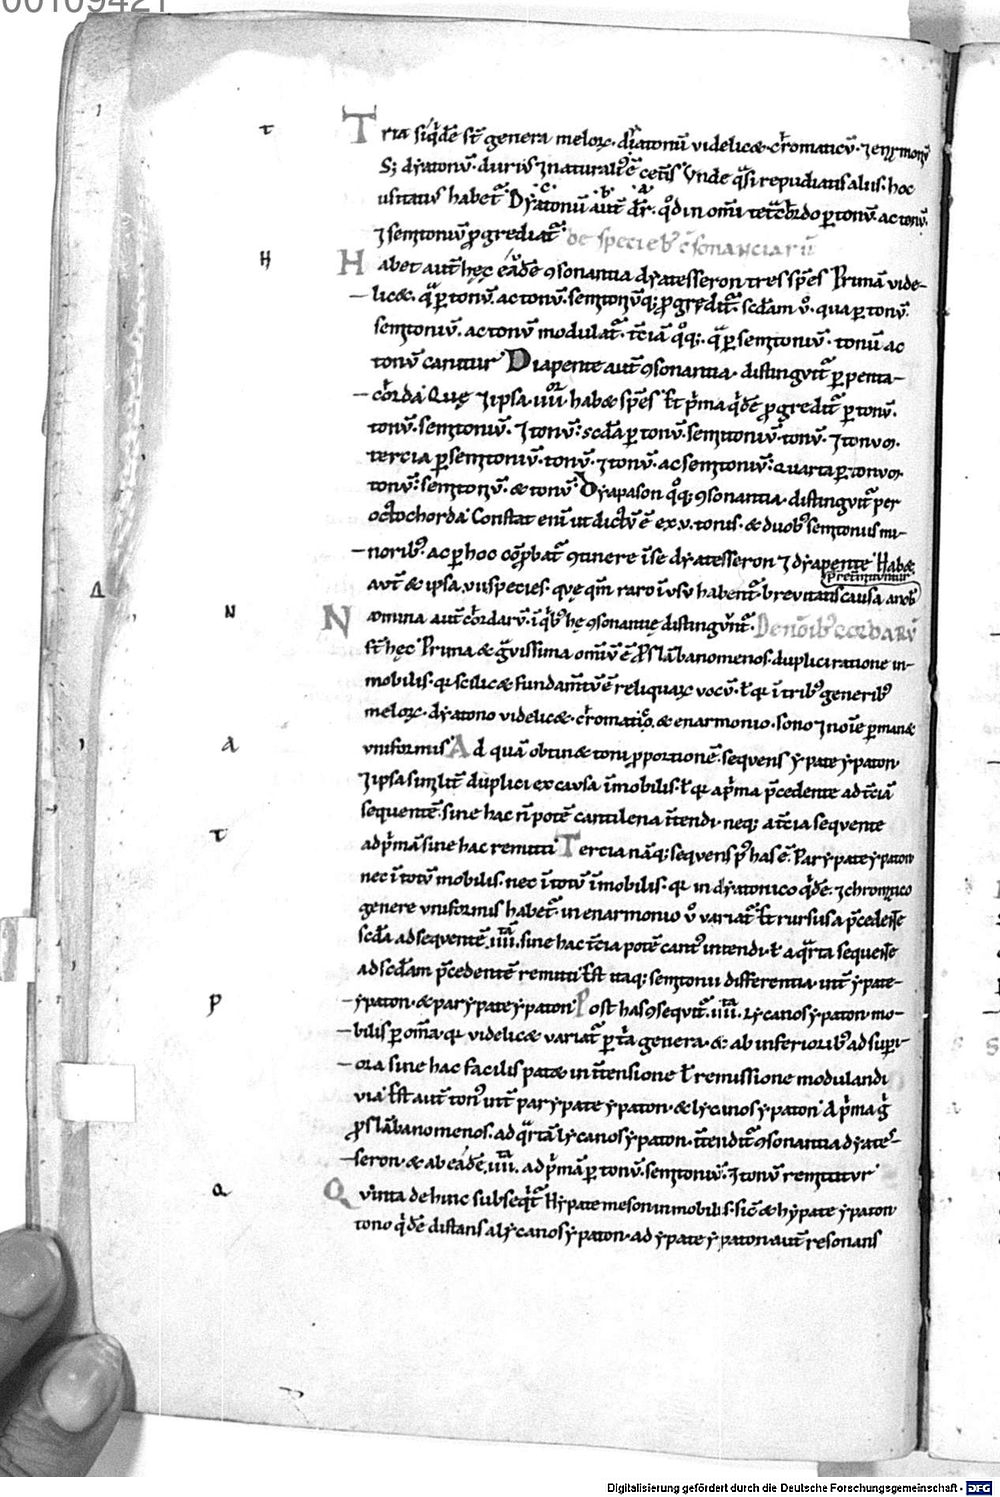 00109421
Tria siqͥdē st̄ genera meloꝝ. diatonū videlicæ. cͪromaticū. ⁊ enꝛmonū
S; dẏatonū. durū ⁊ naturalit̄ ē cens̄ Vnde q̄si repudiatis aliis. hoc
usitatius habet᷑ Dẏatonū aut̄ dr̄. qͦd in om̄i tetͣcͪordo ꝑ tonū. ac tonū.
⁊ semitoniū ꝓgrediat᷑ De specieb; ꝯsonanciarū
Habet aut̄ hęc eádē ꝯsonantia dẏatesseron tres sp̄es Primā vide-
licæ. q̄ ꝑ tonū. ac tonū. semitoniūq; ꝓgredit᷑. scd̄am ů. qua ꝑ tonū.
semitoniū. ac tonū modulat᷑. tc̄iā qͦq;. q̄ ꝑ semitoniū. tonū ac
tonū canitur Diapente aut̄ ꝯsonantia. distingvit᷑ ꝑ penta-
cͪorda Quę ⁊ ipsa. IIIIor habæ sp̄es Et pͥma qͥdē ꝓgredit᷑ ꝑ tonū.
tonū. semitoniū. ⁊ tonū: scd̄a ꝑ tonū. semitoniū. tonū. ⁊ tonum.
tercia ꝑ semitoniū. tonū. ⁊ tonū. ac semitoniū: quarta ꝑ tonum
tonū: semitoniū. & tonū Dẏapason qͦq; ꝯsonantia. distingvit᷑ per
octochorda Constat eni ut dictū ē ex .v. tonis. & duob; semitoniis mi-
norib;. ac ꝑ hoc cōprobat᷑ ꝯtinere in se dẏatesseron ⁊ dẏapente Habæ
aut̄ & ipsa .vii species. quę qm̄ raro in usu habent᷑ brevitatis causa a nob̄
pretmittuntur
Nomina aut̄ cͪordarū. in qͥb; hę ꝯsonantię distingvūt᷑. De noīb; cordarū
st̄ hęc Prima & gͣvissima omiū ē Pslābanomenos. duplici ratione in-
mobilis. qͣ scilicæ fundam̄tū ē reliquaꝝ vocū. ł qͣ in trib; generib;
meloꝝ. dẏatono videlicæ. cͪromatico. & enarmonio. sono ⁊ noīe ꝑmanæ
vniformis Ad quā obtinæ toni ꝓportionē. seqvens ẏpate ẏpaton
⁊ ipsa similit̄ duplici ex cavsa inmobilis. ł qͣ a pͥma p̄cedente ad tc̄iā
sequentē. sine hac n̄ potē cantilena intendi. neq; a tc̄ia seqvente
ad pͥmā sine hac remitti Tercia nāq; seqvens pͦ has ē. Parẏpate ẏpaton
nec in totū mobilis. nec in totū inmobilis. qͣ in dẏatonico qͥdē. ⁊ chromatico
genere vniformis habet᷑. in enarmonio ů variat᷑. Et rursus a p̄cedente
scd̄a ad seqventē .IIIItā. sine hac tc̄ia potē cant; intendi. ł a qͣrta sequente
ad scd̄am p̄cedentē remitti Est itaq; semitonii differentia int̄ ẏpate-
ẏpaton. & parẏpate ẏpaton Post has ꝯseqvit᷑. IIIIta. Lẏcanos ẏpaton. mo-
bilis ꝑ om̄a. qͣ videlicæ variat᷑ ꝑ tͥa genera. & ab inferiorib; ad supi-
ora sine hac facilis patæ in tensione ł remissione modulandi
via Est aut̄ ton; int̄ parẏpate ẏpaton. & lẏcanos ẏpaton A pͥma gͥ
ꝓslābanomenos. ad qͣrtā lẏcanos ẏpaton. tendit᷑ ꝯsonantia dẏates-
seron. & ab eádē .IIIIta. ad pͥmā ꝑ tonū. semitoniū. ⁊ tonū remittitur
Qvinta dehinc subseqit᷑ Hẏpate meson inmobilis. sic & hẏpate ẏpaton
tono qͥdē distans a lẏcanos ẏpaton. ad ẏpate ẏpaton aut̄ resonans
Digitalisierung gefördert durch die Deutsche Forschungsgemeinschaft - DFG